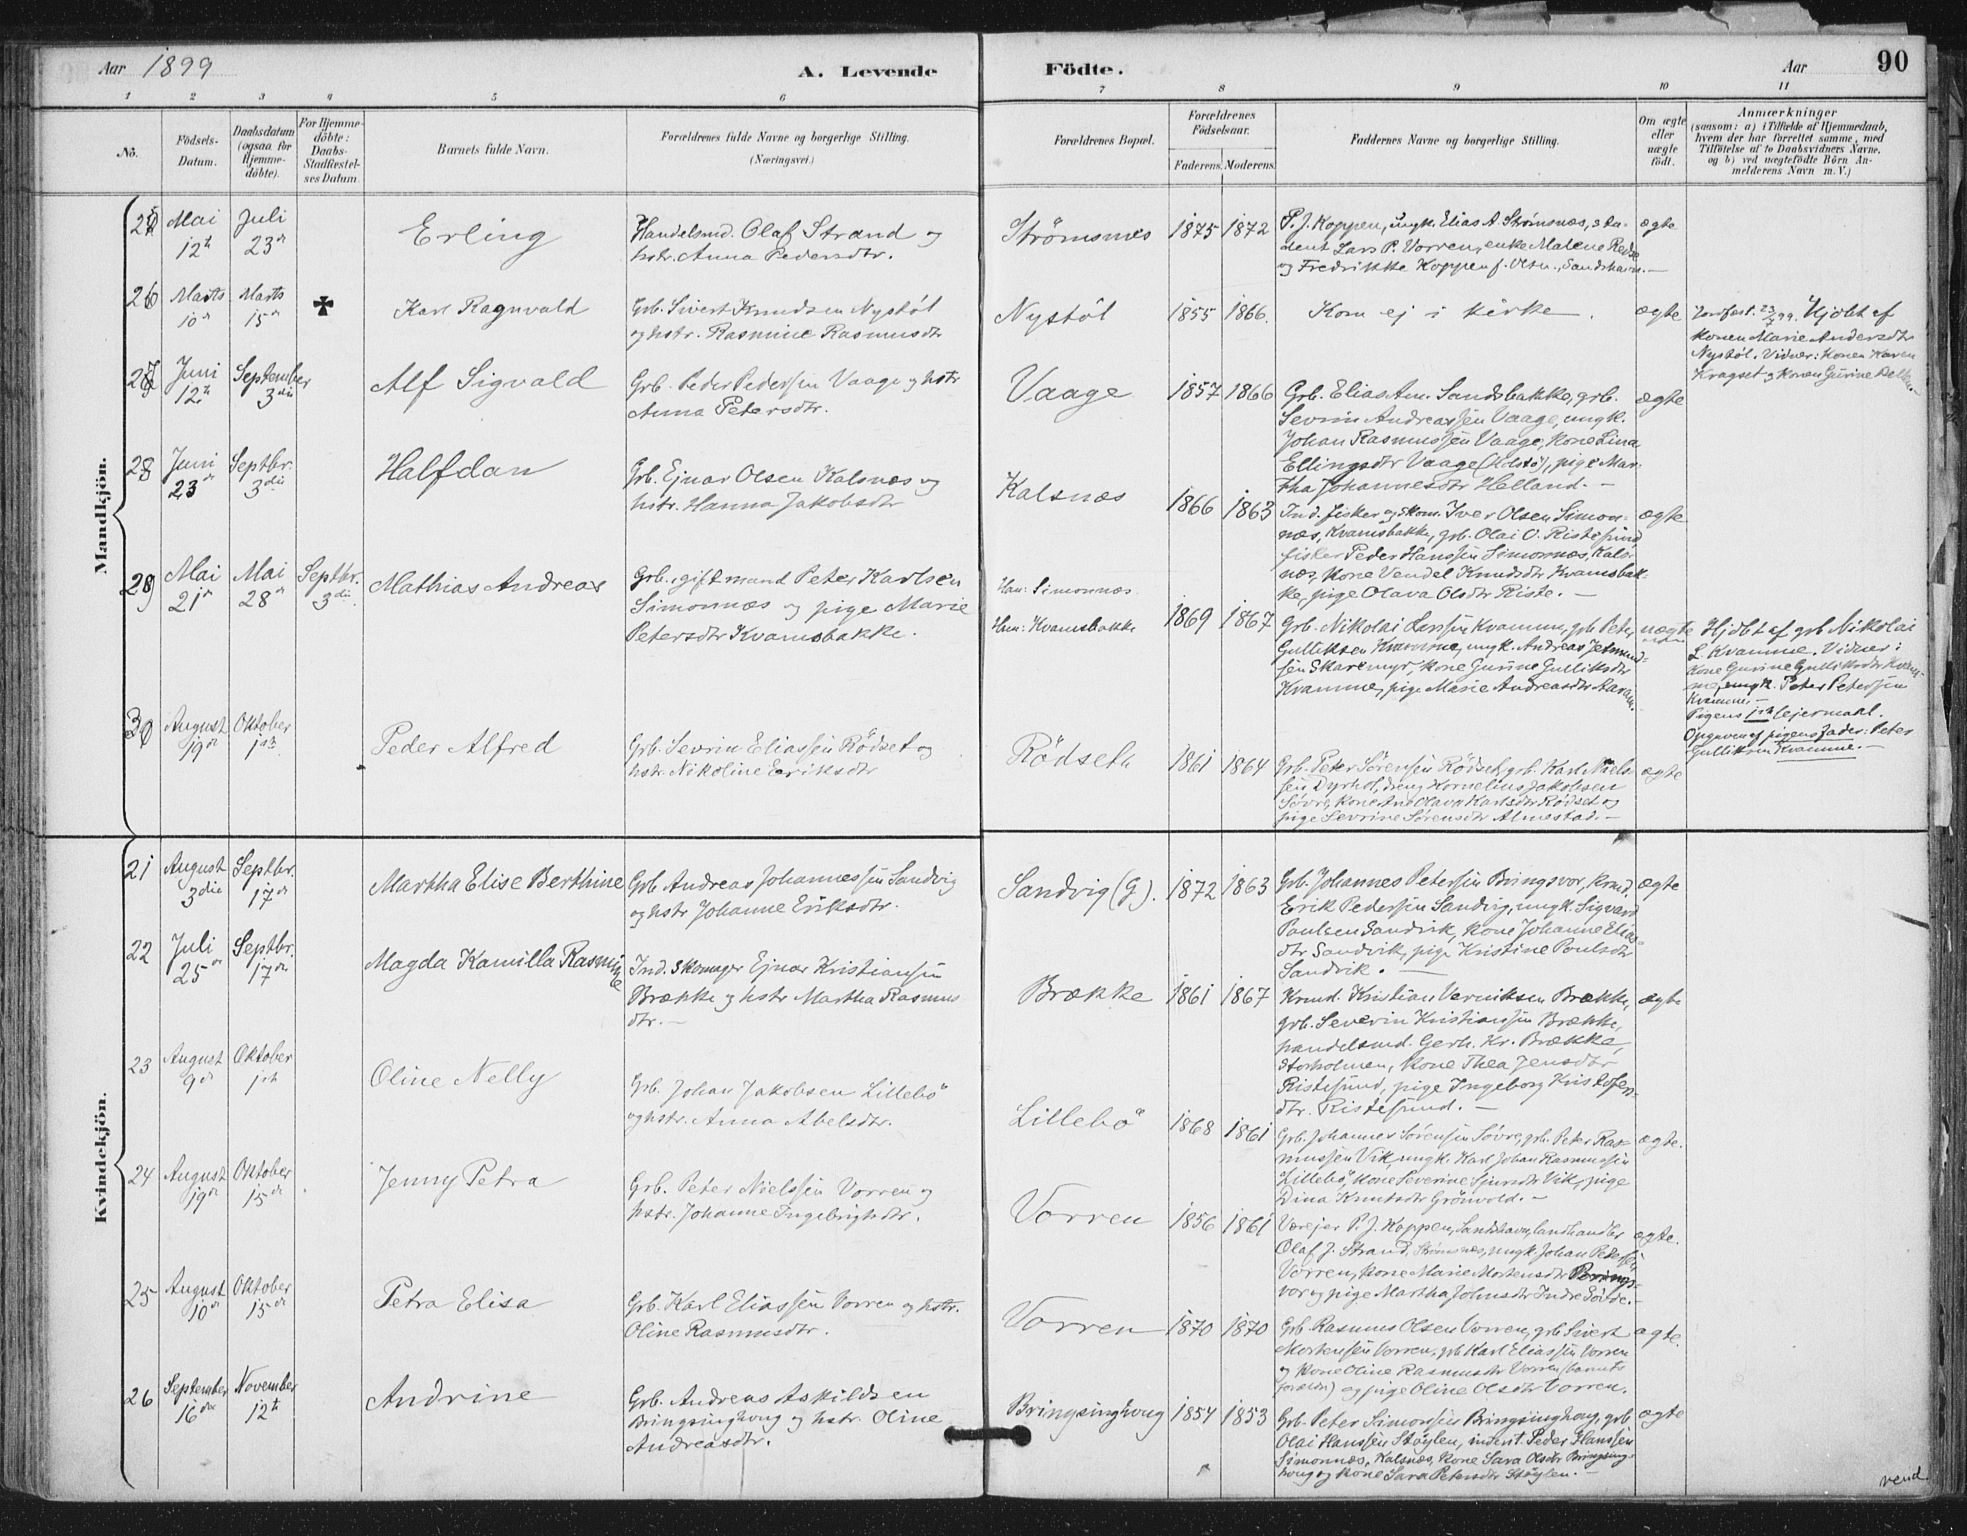 Aar 1899
A. Levende
Födte.
Aar
90
1 2 3 4 5 6 7 8 9 10 11
No.
Födsels-
Datum.
Daabsdatum
(ogsaa for
Hjemme-
döbte).
For Hjemme-
döbte:
Daabs-
Stadfæstel-
ses Datum.
Barnets fulde Navn.
Forældrenes fulde Navne og borgerlige Stilling.
(Næringsvei.)
Forældrenes Bopæl.
Forældrenes
Födselsaar.
Faderens. Moderens.
Faddernes Navne og borgerlige Stilling.
Om ægte
eller
uægte
födt.
Anmærkninger
(saasom: a) i Tilfælde af Hjemmedaab,
hvem der har forrettet samme, med
Tilföielse af to Daabsvidners Navne,
og b) ved uægtefödte Börn An-
melderens Navn m. V.)
Mandkjön.
25 Mai 12te Juli 23de
Erling
Handelsmd. Olaf Strand og
hstr. Anna Pedersdtr.
Strømsnes 1875 1872
P. J. Koppen, ungk. Elias A Strømsnæs, stu-
dent Lars P. Vorren, enke Malene Redse
og Fredrikke Koppen f. Olsen, Sandshavn. —
ægte
26 Marts 10de Marts 15de ✝
Karl Ragnvald
Grb. Sivert Knudsen Nystøl
og hstr. Rasmine Rasmusdtr
Nystöl 1855 1866.
Kom ej i kirke.
ægte
Jordfæst. 23/7 99. Hjdbt af
konen Marie Andersdtr
Nystöl. Vidner: Konen Karen
Kragset og Konen Gurine
27 Juni 12te September 3die
Alf Sigvald
Grb. Peder Pedersen Vaage og hstr
Anna Petersdtr.
Vaage 1857 1866
Grb. Elias Am. Sandsbakke, grb.
Sevrin Andreassen Vaage, ungk.
Johan Rasmussen Vaage, kone Lina
Ellingsdtr Vaage (Holstö), pige Mar-
tha Johannesdtr Helland. —
ægte
28 Juni 23de Septbr. 3die
Halfdan
Grb. Ejnar Olsen Kalsnæs og
hstr. Hanna Jakobsdtr
Kalsnæs 1866 1863
Ind. fisker og skom. Iver Olsen Simon-
næs, Kvamsbakke, grb. Olai O. Ristesund
fisker Peder Hanssen Simonnæs, Kals-
næs, kone Vendel Knudsdtr Kvamsbak-
ke, pige Olava Olsdtr Riste. —
ægte
29 Mai 21de Mai 28de Septbr. 3die
Mathias Andreas
Grb., gift mand Peter Karlsen
Simonnæs og pige Marie
Petersdtr Kvamsbakke.
Han: Simonnæs.
Hun: Kvamsbakke
1869 1867
Grb. Nikolai Larssen Kvamme, grb Peter
Gulliksen Kvamme, ungk. Andreas Jetmund-
sen Skaremyr, kone Gurine Gulliksdtr
Kvamme, pige Marie Andreasdtr Aaram.
uægte
Hjdbt af grb Nikolai
L. Kvamme. Vidner:
Kone Gurine Gulliksdtr Kvam-
me, ungk. Peter Petersen
Kvamme. —
Pigens 1ste lejermaal.
Opgaven af pigens fader: Peter
Gulliksen Kvamme. —
30 August 19de Oktober 1ste
Peder Alfred
Grb. Sevrin Eliassen Rödset og
hstr. Nikoline Eriksdtr
Rödseth 1861 1864
Grb. Peter Sörensen Rödset, grb. Karl Niels-
sen Dyrhol, dreng Kornelius Jakobsen
Sövre, kone Ane Olava Karlsdtr Rödset og
pige Sevrine Sörensdtr Almestad. —
ægte
Kvindekjön.
21 August 3die Septbr. 17de
Martha Elise Berthine
Grb Andreas Johannessen Sandvig
og hstr Johanne Eriksdtr.
Sandvig (G). 1872 1863
Grb. Johannes Petersen Bringsvor, krmd.
Erik Pedersen Sandvig, ungk. Sigvard
Paulsen Sandvik, kone Johanne Elias-
dtr Sandvik, pige Kristine Poulsdtr
Sandvik. —
ægte
22 Juli 25de Septbr. 17de
Magda Kamilla Rasmine
Ind. Skomager Ejnar Kristiansen
Brække og hstr Martha Rasmus
dtr. —
Brække 1861 1867
Krmd. Kristian Verniksen Brække,
grb. Severin Kristiansen Brække,
handelsmd. Gerh. Kr. Brække,
Storholmen, kone Thea Jensdtr
Ristesund, pige Ingeborg Kristofers-
dtr. Ristesund. —
ægte
23 August 9de Oktober 1ste
Oline Nelly
Grb. Johan Jakobsen Lillebö
og hstr. Anna Abelsdtr.
Lillebö 1868 1861
Grb. Johannes Sörensen Sövre, grb. Peter Ras-
mussen Vik, ungk. Karl Johan Rasmussen
Lillebö, kone Severine Sjursdtr Vik, pige
Dina Knutsdtr Grönvold. —
ægte.
24 August 19de Oktober 15de
Jenny Petra
Grb. Peter Nielssen Vorren og
hstr. Johanne Ingebrigtsdtr.
Vorren 1856 1861
Værejer P. J. Koppen, Sandshavn, landhandler
Olaf J. Strand, Strømsnæs, ungk Johan Peterssen
Vorren, kone Marie Mortensdtr Brings-
vor og pige Martha Johnsdtr Indre Sövde. —
ægte.
25 August 10de Oktober 15de
Petra Elisa
Grb. Karl Eliassen Vorren og hstr.
Oline Rasmusdtr.
Vorren 1870 1870
Grb. Rasmus Olsen Vorren, grb Sivert
Mortensen Vorren, grb Karl Eliassen Vorren
og kone Oline Rasmusdtr Vorren (barnets
foræld) og pige Oline Olsdtr Vorren.
ægte.
26 September 16de November 12te
Andrine
Grb. Andreas Askildsen
Bringsinghoug og hstr. Oline
Andreasdtr.
Bringsinghoug 1854 1853
Grb. Peter Simonsen Bringsinghoug, grb
Olai Hanssen Stöylen, inderst Peder Hanssen
Simonnæs, Kalsnæs, kone Sara Olsdtr Bringsing-
houg og kone Sara Petersdtr Stöylen. —
ægte
vend.